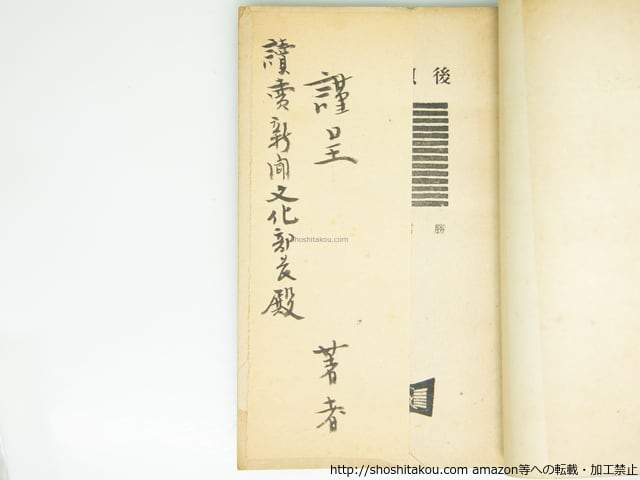 謹呈
著者
讀賣新聞文化部長殿
後
勝
shoshitakou.com
http://shoshitakou.com amazon等への転載・加工禁止